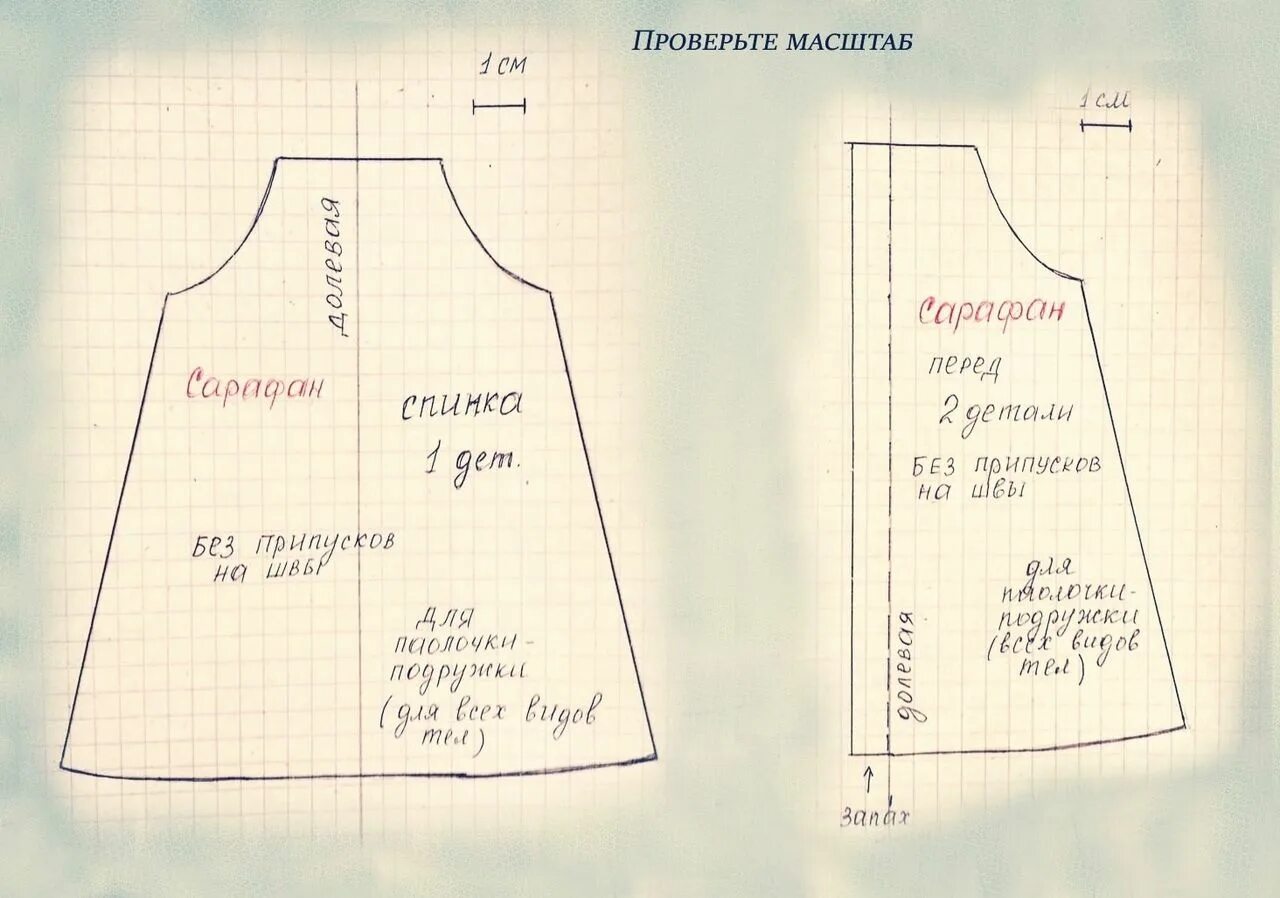 ПРОВЕРЬТЕ МАСШТАБ
1 см
долевая
Сарафан
спинка
1 дет.
БЕЗ припусков
на швы
для
паолочки-
подружки
(для всех видов
тел)
1 см
Сарафан
перед
2 детали
БЕЗ припусков
на швы
для
паолочки-
подружки
(всех видов
тел)
долевая
запах